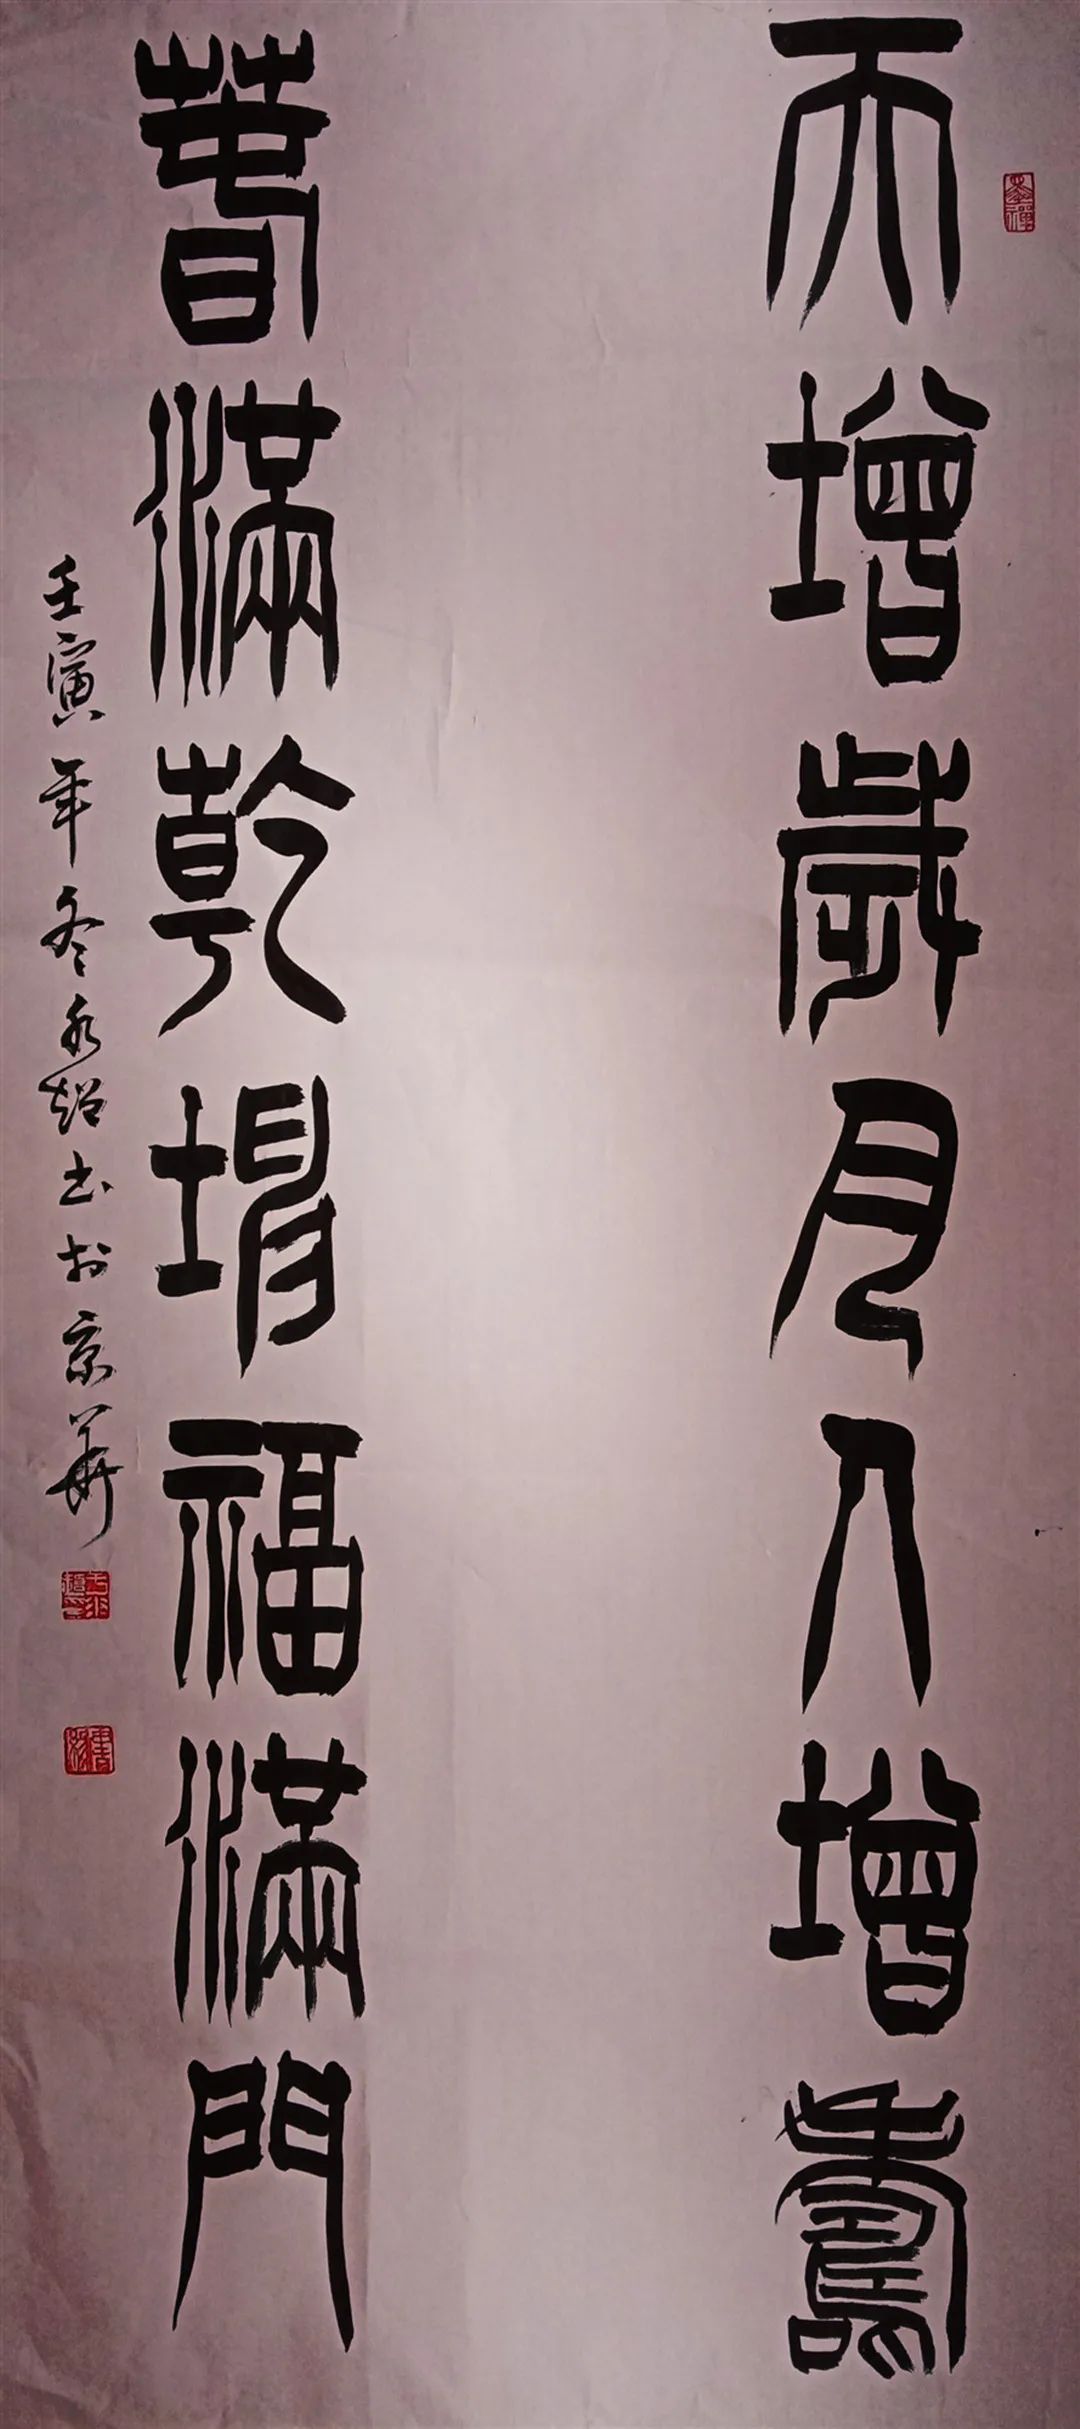 天增歲月人增壽
春滿乾坤福滿門
壬寅年冬永超书於京華